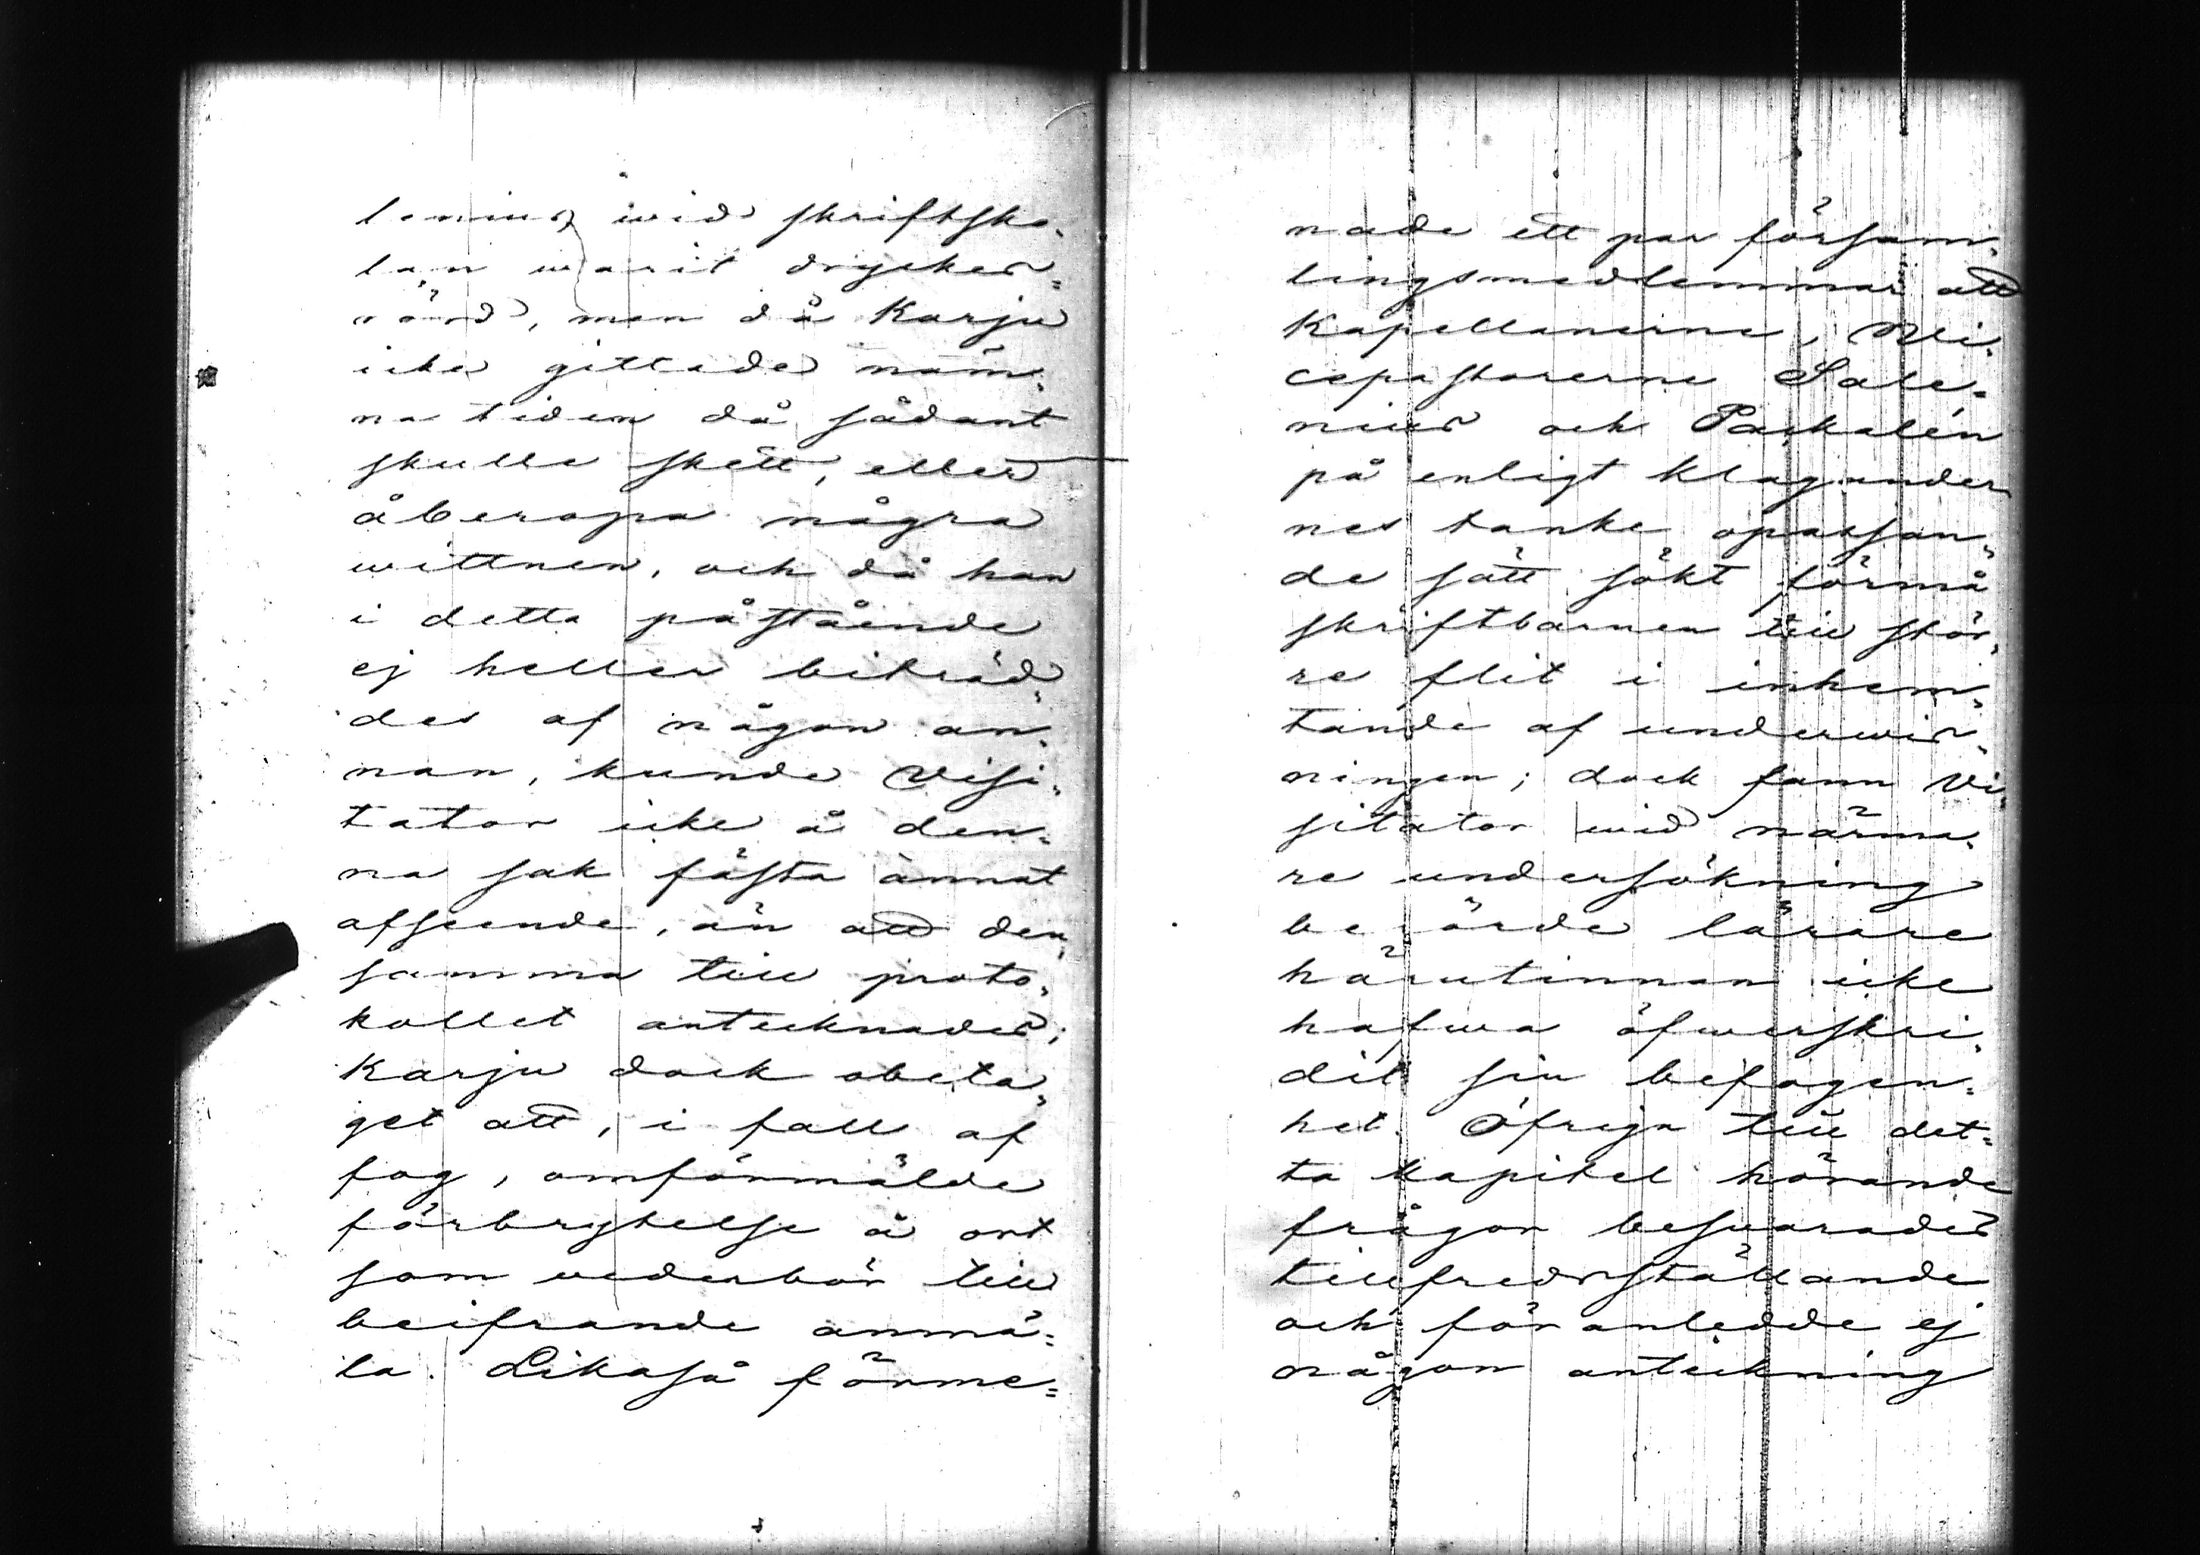 lenius wid skriftsko„
lan warit drycken„
rörd, men då Karju
icke gittade näm„
na tiden då sådant
skulle skett, eller
åberopa några
wittnen, och då han
i detta påstående
ej heller biträd„
des af någon an„
nan, kunde Visi„
tator icke å den„
na sak fästa annat
afseende, än att den„
samma till proto„
kollet antecknades;
Karju dock obeta„
get att, i fall af
fog, omförmälde
förbrytelse å ort
som wederbör till
beifrande anmä„
la. Likaså förme„
nade ett par försam„
lingsmedlemmar att
Kapellanerne, Wi„
cepastorerne Sale„
nius och Paskalén
på enligt klagander„
nes tanke opassan„
de sätt sökt förmå
skriftbarnen till stör„
re flit i inhem„
tande af underwis„
ningen; dock fann Vi„
sitator wid närma„
re undersökning
berörde lärare
härutinnan icke
hafwa öfwerskri„
dit sin befogen„
het. Öfriga till det„
ta kapitel hörande
frågor beswarades
tillfredsställande
och föranledde ej
någon anteckning